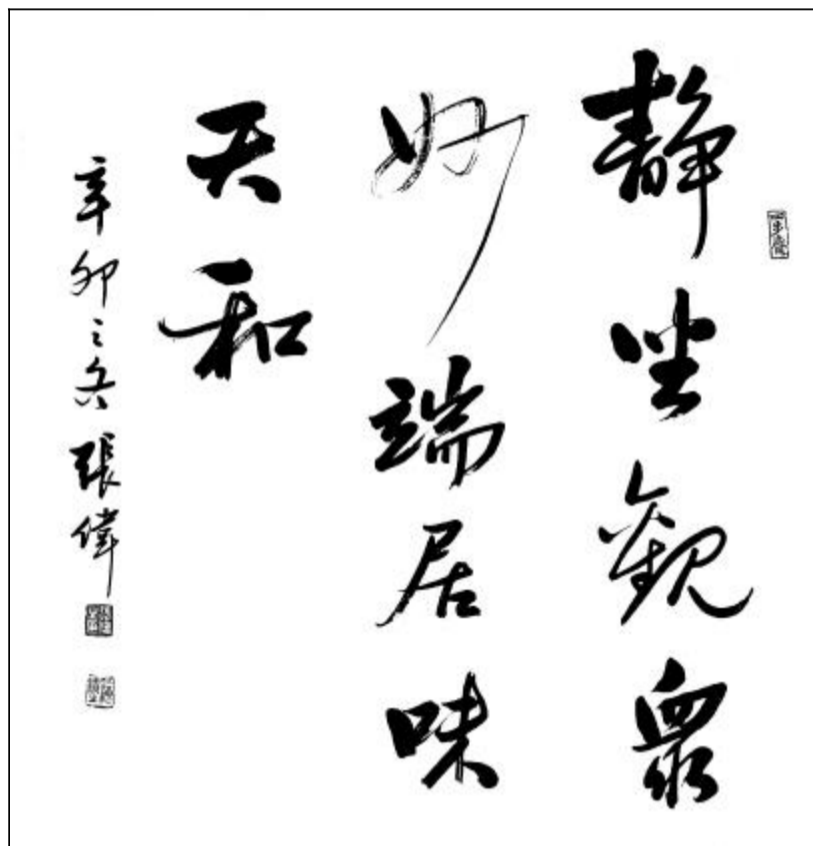 靜坐觀衆
妙端居味
天和
辛卯之冬張偉